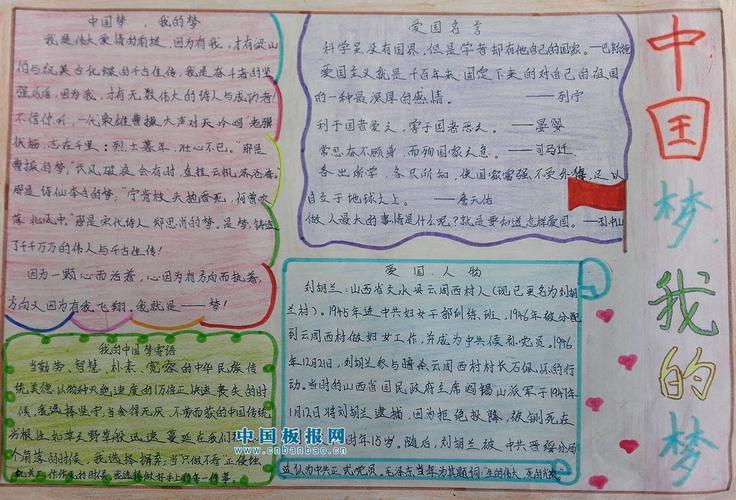 中国梦，我的梦
我是伟大爱情的前提，因为有我，才有梁山
伯与祝英台化蝶的千古佳传，我是奋斗者的坚
强后盾，因为我，才有无数伟大的诗人与成功者！
不信你听，一代枭雄曹操大声对天吟唱老骥
伏枥，志在千里；烈士暮年，壮心不已。那是
曹操的梦，"长风破浪会有时，直挂云帆济沧海。
那是诗仙李白的梦；"宁肯枝头抱香死，何曾吹
落北风中。"那是宋代诗人郑思肖的梦。是梦，铸造
了千千万万的伟人与千古佳传！
因为一颗心而活着，心因为有方向而执着，
方向又因为有我飞翔。我就是——梦！
我的中国梦寄语
当勤劳、智慧、朴素、宽容的中华民族传
统美德以物种灭绝速度的1万倍正快速丧失的时
候，我选择坚守；当贪得无厌、不劳而获的中国传统
劣根性如草三野草般迅速蔓延在我们
个角落的时候，我选择摒弃；当"只做不看"正侵蚀
的时候，我选择做好手上的每一件事。
爱国名言
科学虽没有国界，但是学者却有他自己的国家。——巴斯德
爱国主义就是千百年来固定下来的对自己的祖国
的一种最深厚的感情。——列宁
利于国者爱之，害于国者恶之。——晏婴
常思奋不顾身，而殉国家之急。——司马迁
各出所学，各尽所知，使国家富强不受外侮，足以
自立于地球之上。——詹天佑
做人最大的事情是什么呢？就是要知道怎样爱国。——孙中山
爱国人物
刘胡兰：山西省文水县云周西村人（现已更名为刘胡
兰村）。1945年进中共妇女干部训练班，1946年被分配
到云周西村做妇女工作，并成为中共候补党员。1946
年12月21日，刘胡兰参与暗杀云周西村村长石佩怀的行
动。当时的山西省国民政府主席阎锡山派军于1947年
1月12日将刘胡兰逮捕，因为拒绝投降，被铡死在
时年15岁。随后，刘胡兰被中共晋绥分局
追认为中共正式党员。毛泽东当年为其题词："生的伟大，死的光荣"
中国梦，我的梦
中国板报网
www.cnbanbao.cn